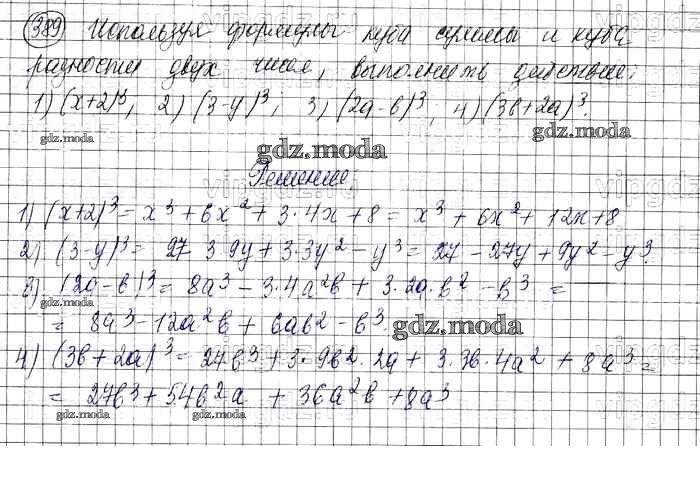 389 Используя формулы куба суммы и куба
разности двух чисел, выполнить действие:
1) (x+2)³, 2) (3-y)³, 3) (2a-b)³, 4) (3b+2a)³.
gdz.moda gdz.moda
gdz.moda
Решение:
1) (x+2)³ = x³ + 6x² + 3·4x + 8 = x³ + 6x² + 12x + 8
2) (3-y)³ = 27 3·9y + 3·3y² - y³ = 27 - 27y + 9y² - y³.
3) (2a-b)³ = 8a³ - 3·4a²b + 3·2a·b² - b³ =
gdz.moda
= 8a³ - 12a²b + 6ab² - b³.
gdz.moda
4) (3b+2a)³ = 27b³ + 3·9b²·2a + 3·3b·4a² + 8a³ =
= 27b³ + 54b²a + 36a²b + 8a³
gdz.moda gdz.moda